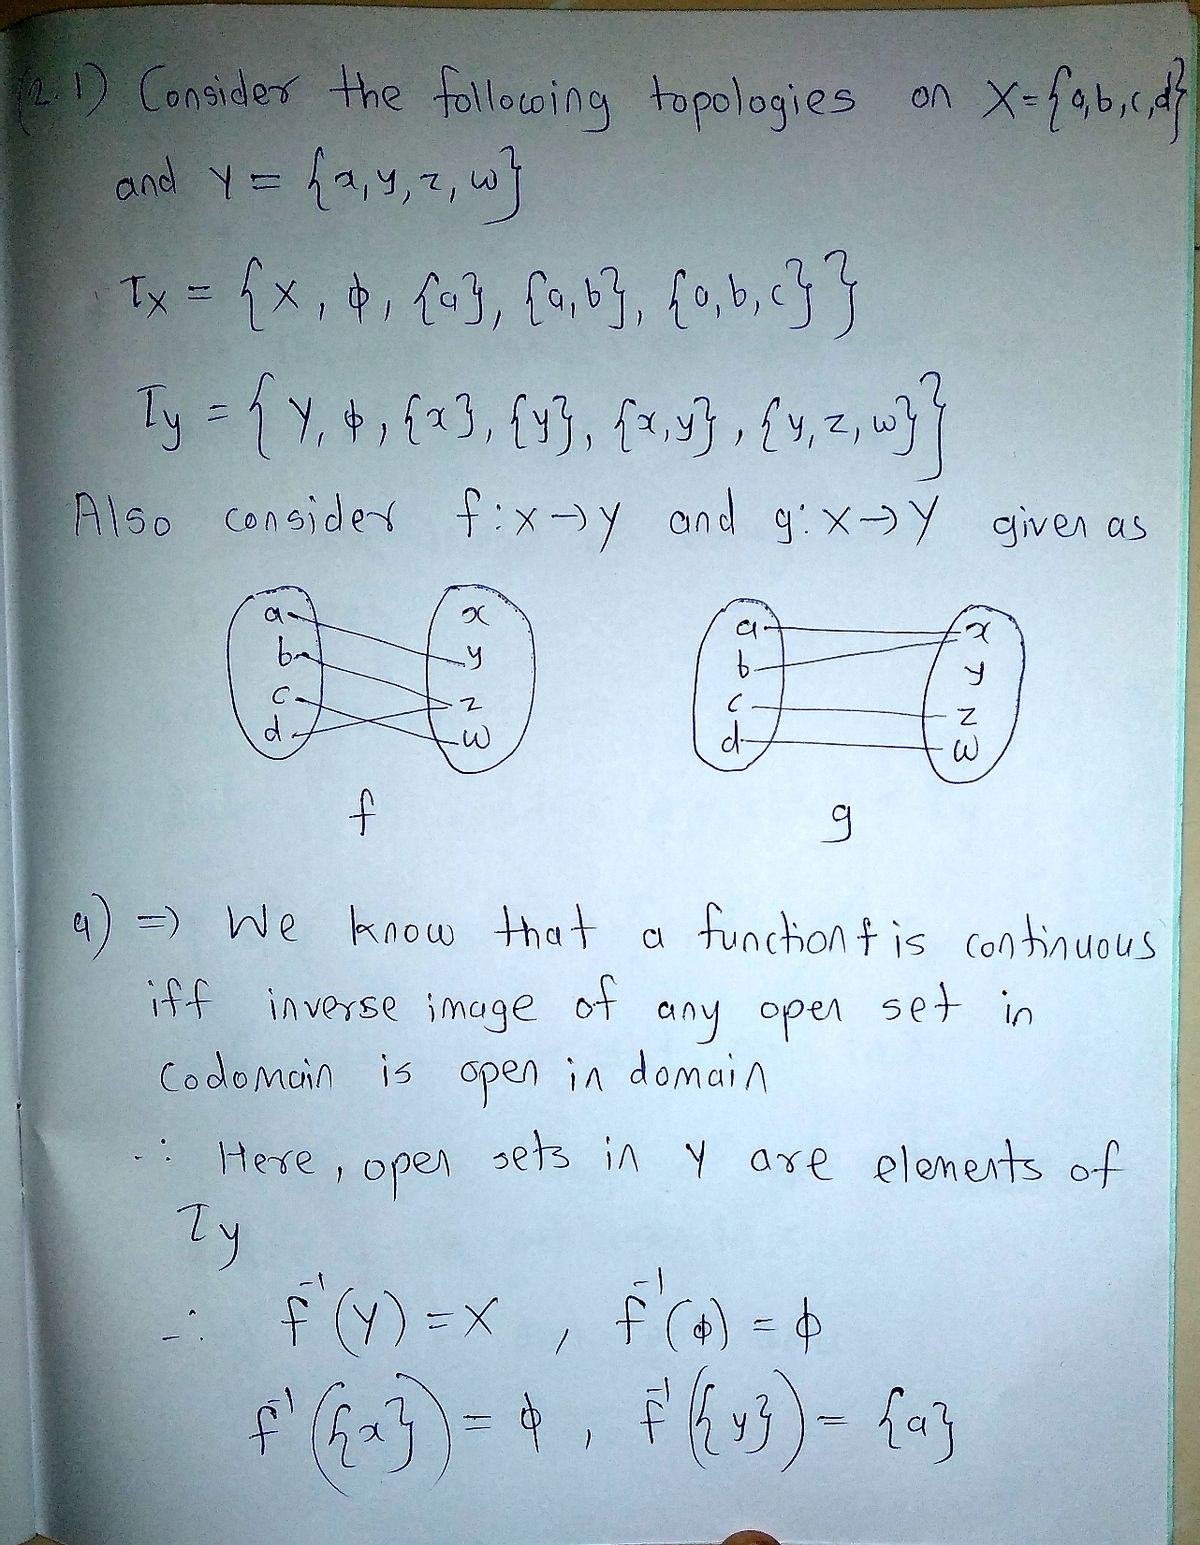 (2.1) Consider the following topologies on X={a,b,c,d}
and Y = {x,y,z,w}
τx = {X, ϕ, {a}, {a,b}, {a,b,c}}
τy = {Y, ϕ, {x}, {y}, {x,y}, {y,z,w}}
Also consider f:x→y and g:X→Y given as
a x a x
b y b y
c z c z
d w d w
f g
a) ⇒ We know that a function f is continuous
iff inverse image of any open set in
codomain is open in domain
∴ Here, open sets in Y are elements of
τy
∴ f⁻¹(Y) = X , f⁻¹(ϕ) = ϕ
f⁻¹({x}) = ϕ , f⁻¹({y}) = {a}